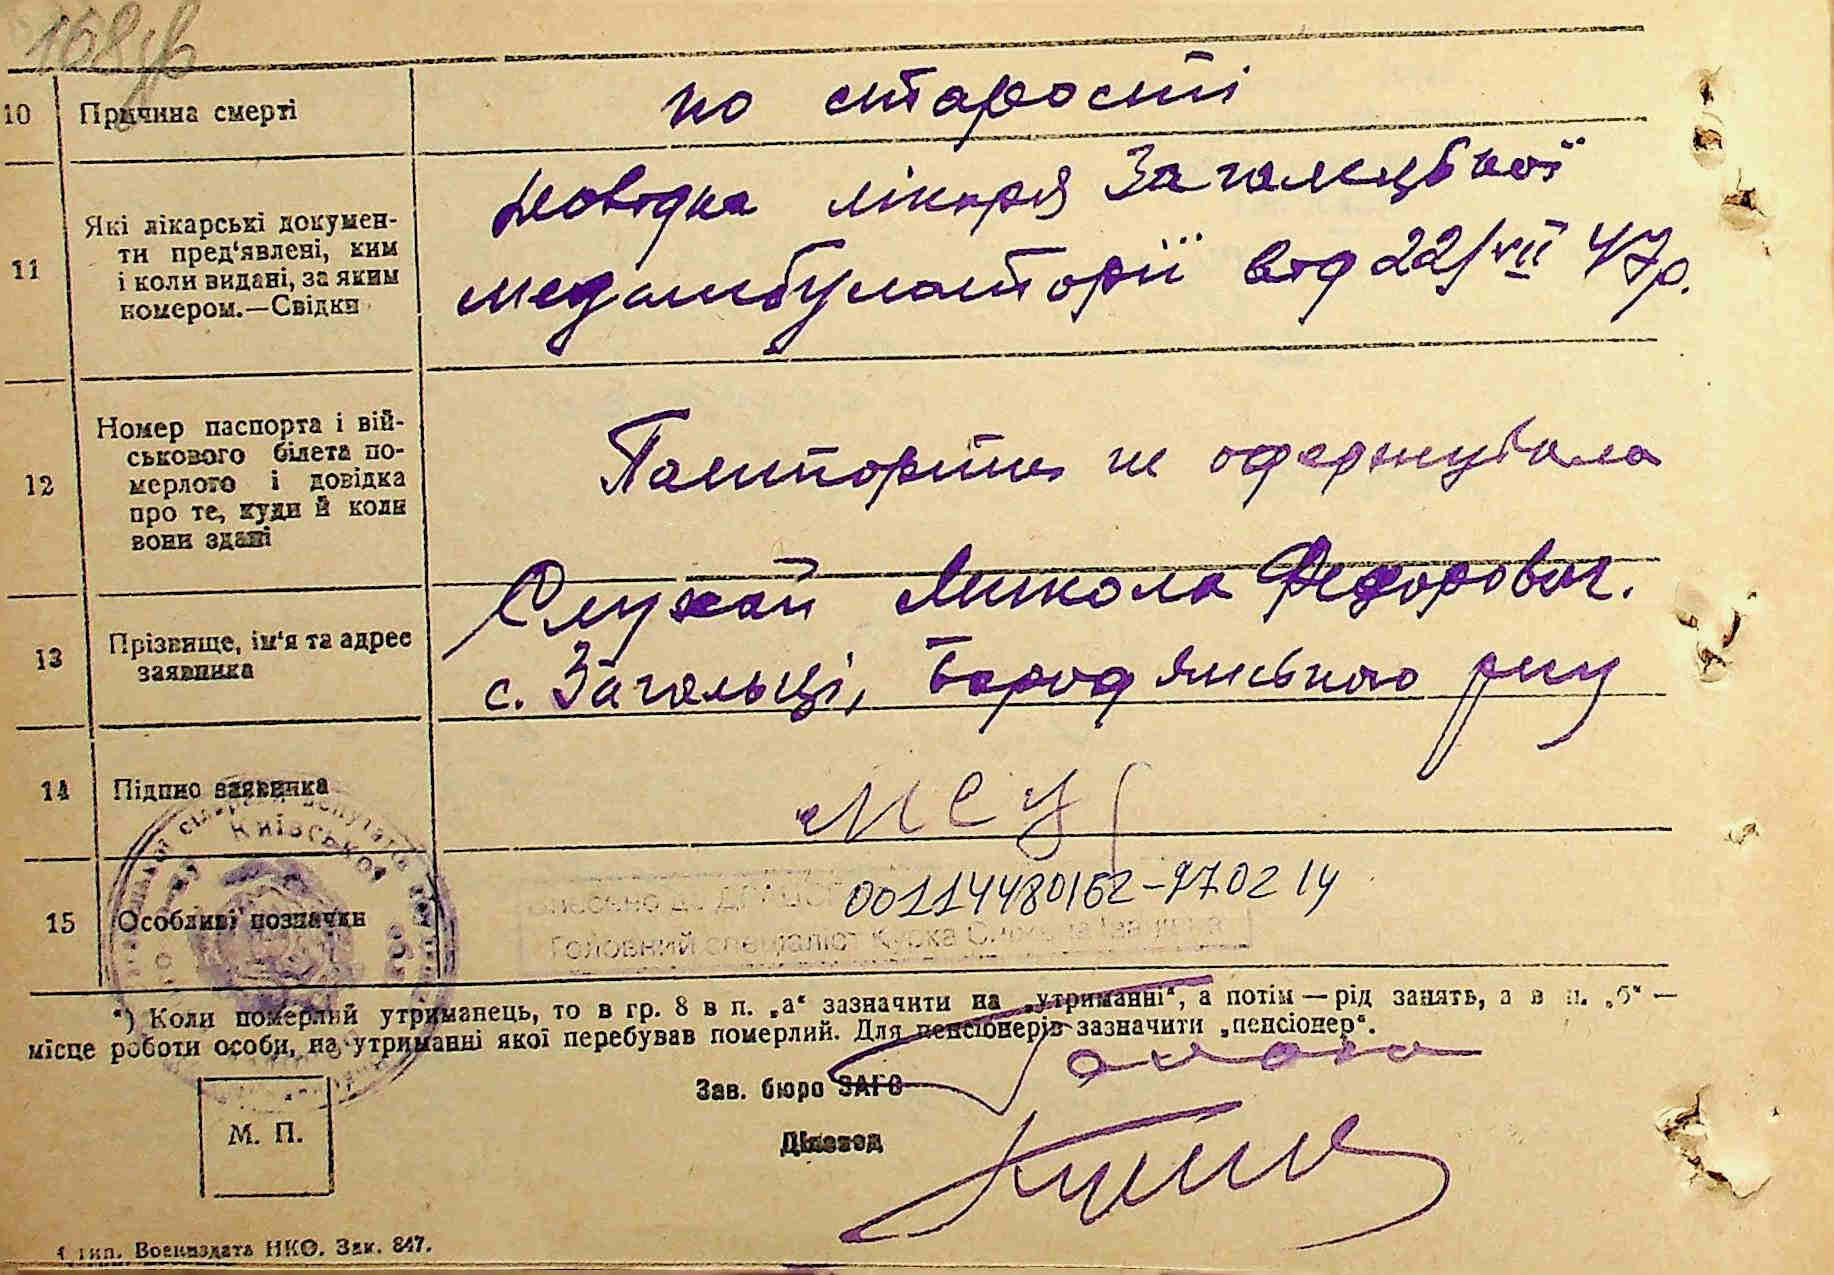 168зв
10 Причина смерті
по старості
11 Які лікарські докумен-
ти пред'явлені, ким
і коли видані, за яким
номером.—Свідки
Довідка лікаря Загалецької
медамбулаторії від 22/VII 47р.
12 Номер паспорта і вій-
ськового білета по-
мерлого і довідка
про те, куди й коли
вони здані
Паспорта не одержувала
13 Прізвище, ім'я та адрес
заявника
Микола Федорович.
с. Загальці, Бородянського р-ну
14 Підпис заявника
15 Особливі позначки
Київської
00114480162-270214
Головний спеціаліст
*) Коли померлий утриманець, то в гр. 8 в п. „а“ зазначити на „утриманні“, а потім — рід занять, а в п. „б“ —
місце роботи особи, на утриманні якої перебував померлий. Для пенсіонерів зазначити „пенсіонер“.
Зав. бюро ЗАГС
Діловод
М. П.
1 тип. Воениздата НКО. Зак. 847.